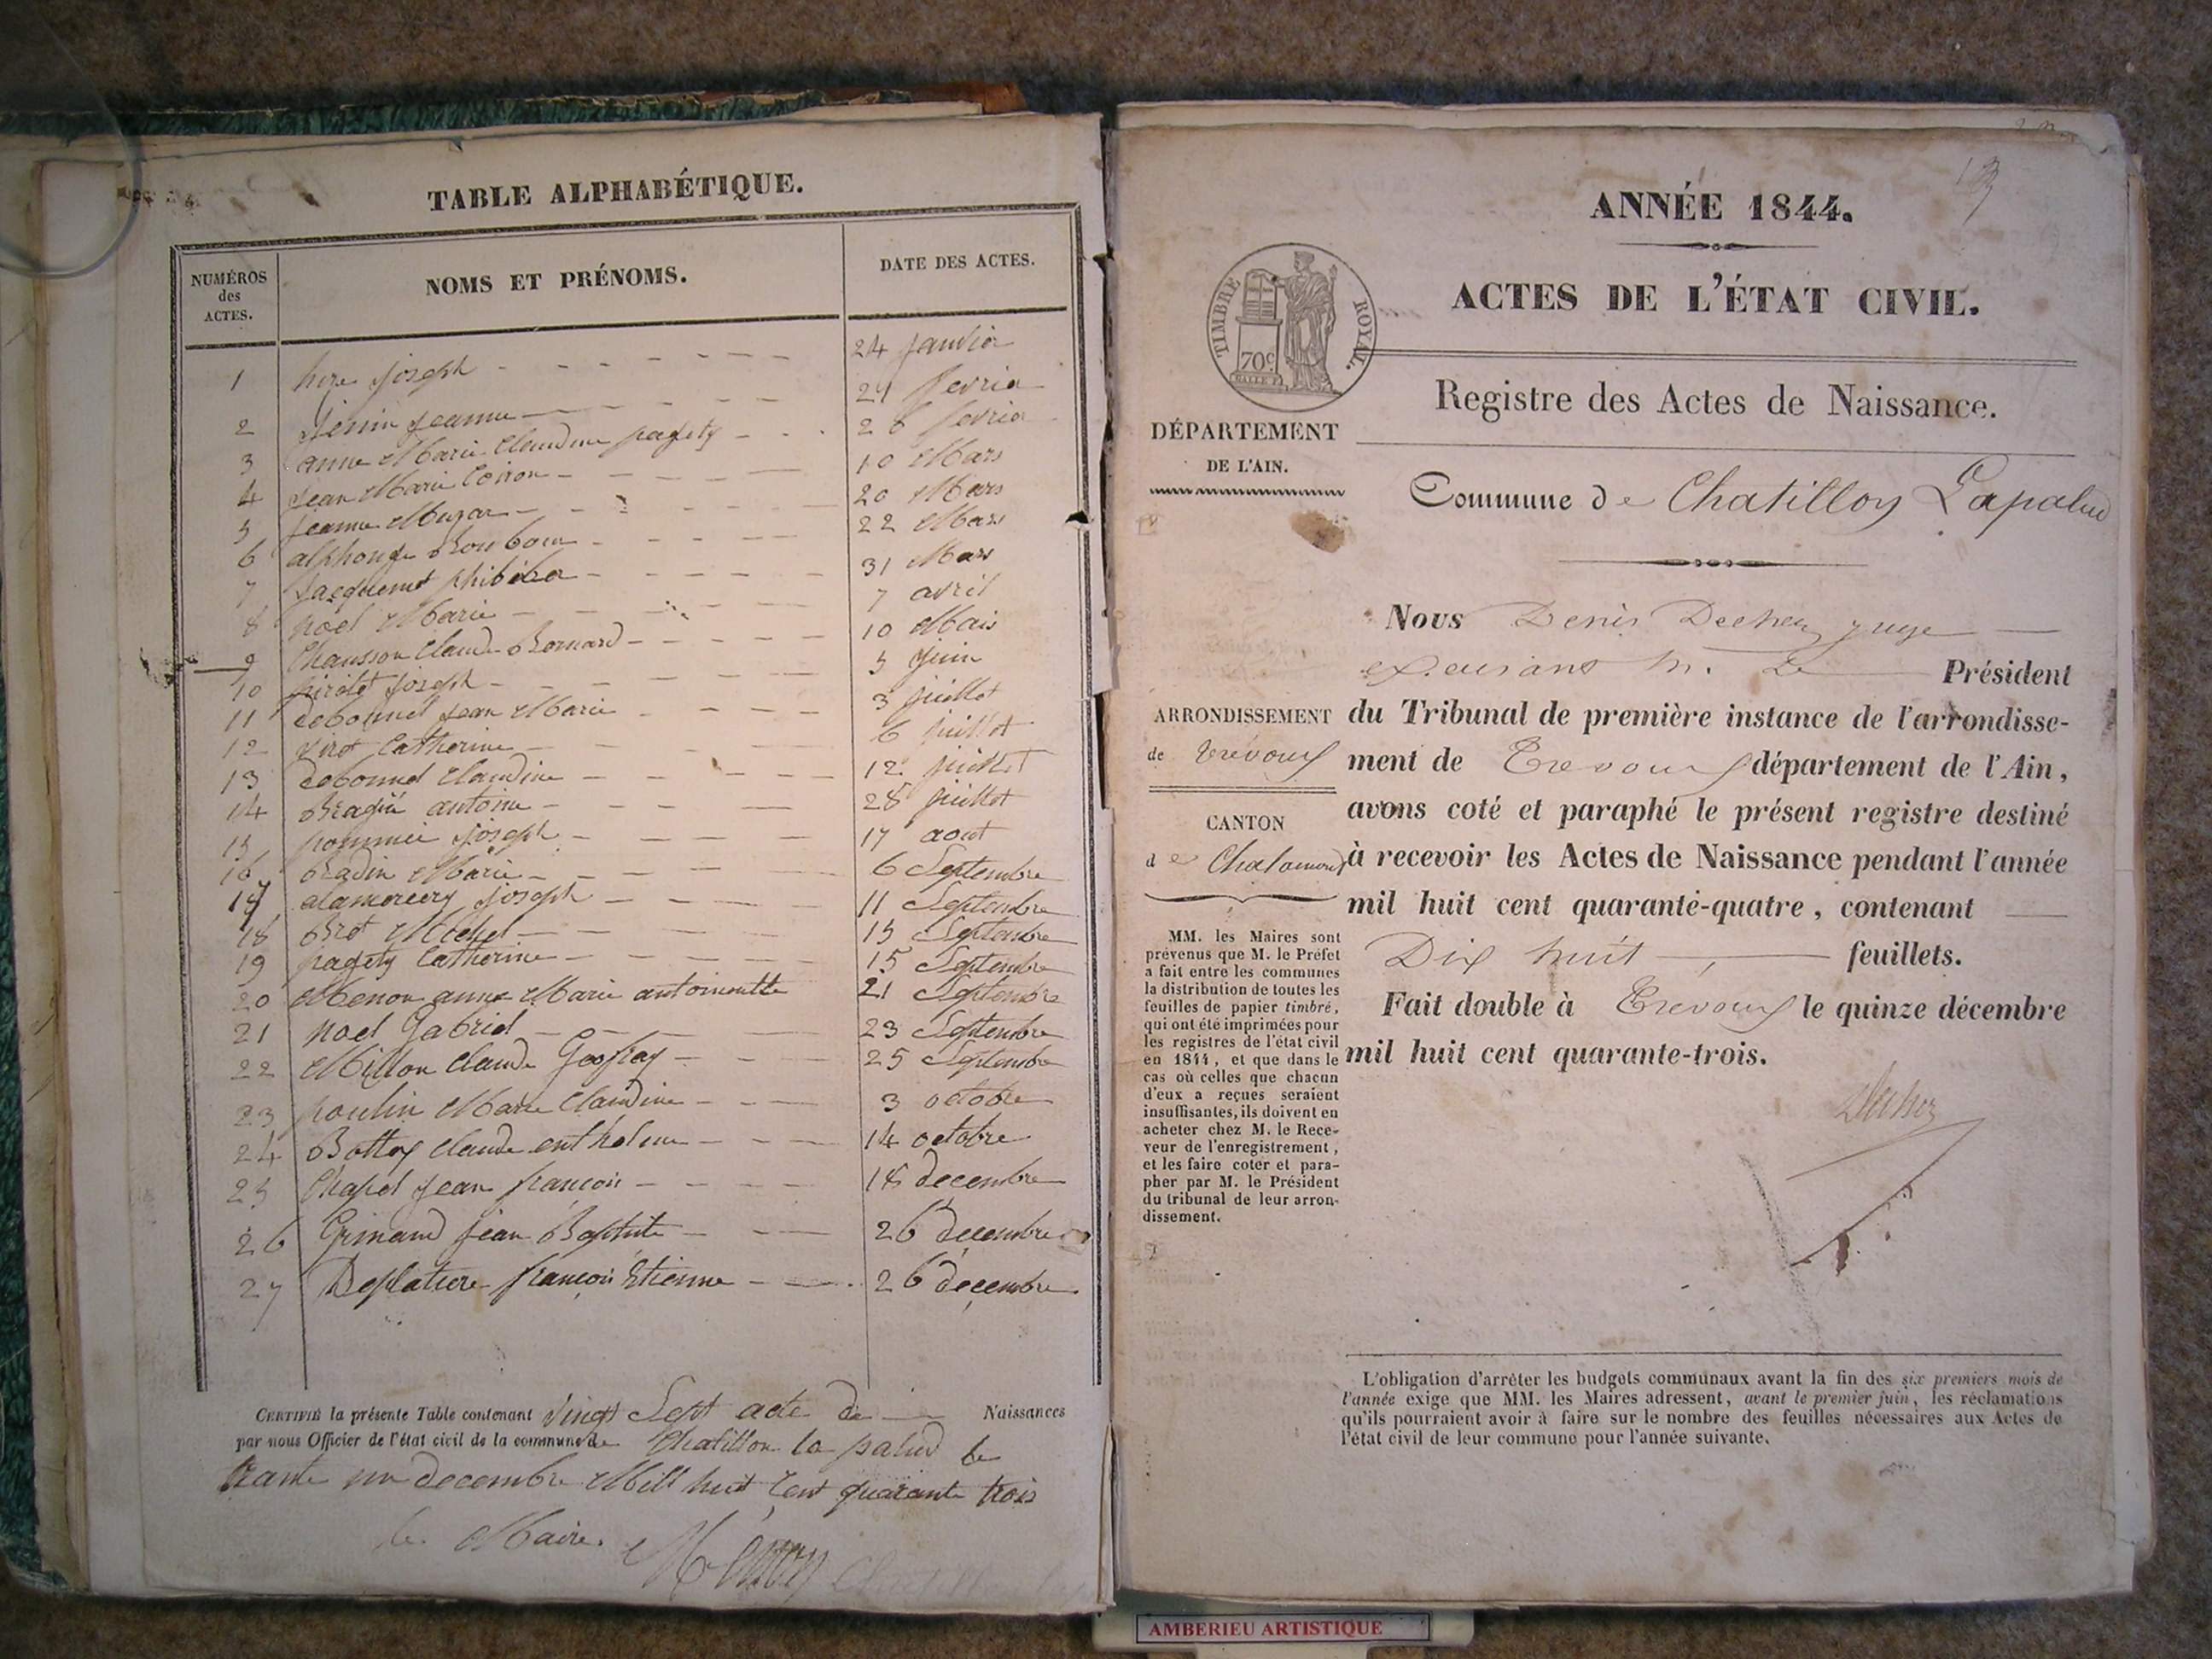 TABLE ALPHABÉTIQUE.
NUMÉROS des ACTES.
NOMS ET PRÉNOMS.
DATE DES ACTES.
1 joseph 24 janvier
2 jeanne fevrier
3 anne Marie Claudine pagety 26 fevrier
4 jean Marie Coiron 10 Mars
5 jeanne 20 Mars
6 alphonse 22 Mars
7 jacquemet philibert 31 Mars
8 noël Marie 7 avril
9 Chausson Claude Bernard 10 Mais
10 pirolet joseph 5 juin
11 debonnet jean Marie 3 juillet
12 virot Catherine 6 juillet
13 debonnet Claudine 12 juillet
14 antoine 28 juillet
15 pommiée joseph 17 aout
16 Marie 6 Septembre
17 joseph 11 Septembre
18 Brot Michel 15 Septembre
19 pagety Catherine 15 Septembre
20 Menon anne Marie antoinette 21 Septembre
21 noël Gabriel 23 Septembre
22 Millon Claude 25 Septembre
23 poulin Marie Claudine 3 octobre
24 Bottex Claude enthelme 14 octobre
25 Chapel jean françois 18 decembre
26 Grimand jean Baptiste 26 decembre
27 Deplature françois Etienne 26 decembre
CERTIFIÉ la présente Table contenant vingt Sept acte de Naissances
par nous Officier de l'état civil de la commune de Chatillon la palud le
trante un decembre Mill huit Cent quarante trois
le Maire.
ANNÉE 1844.
ACTES DE L'ÉTAT CIVIL.
TIMBRE ROYAL.
70c
Registre des Actes de Naissance.
DÉPARTEMENT
DE L'AIN.
Commune de Chatillon Lapalud
Nous Denis juge
M. Le Président
ARRONDISSEMENT
de Trévoux
du Tribunal de première instance de l'arrondisse-
ment de Trevoux département de l'Ain,
avons coté et paraphé le présent registre destiné
CANTON
de Chalamont
à recevoir les Actes de Naissance pendant l'année
mil huit cent quarante-quatre, contenant
Dix huit feuillets.
Fait double à Trevoux le quinze décembre
mil huit cent quarante-trois.
MM. les Maires sont
prévenus que M. le Préfet
a fait entre les communes
la distribution de toutes les
feuilles de papier timbré,
qui ont été imprimées pour
les registres de l'état civil
en 1844, et que dans le
cas où celles que chacun
d'eux a reçues seraient
insuffisantes, ils doivent en
acheter chez M. le Rece-
veur de l'enregistrement,
et les faire coter et para-
pher par M. le Président
du tribunal de leur arron-
dissement.
L'obligation d'arrêter les budgets communaux avant la fin des six premiers mois de
l'année exige que MM. les Maires adressent, avant le premier juin, les réclamations
qu'ils pourraient avoir à faire sur le nombre des feuilles nécessaires aux Actes de
l'état civil de leur commune pour l'année suivante.
AMBERIEU ARTISTIQUE